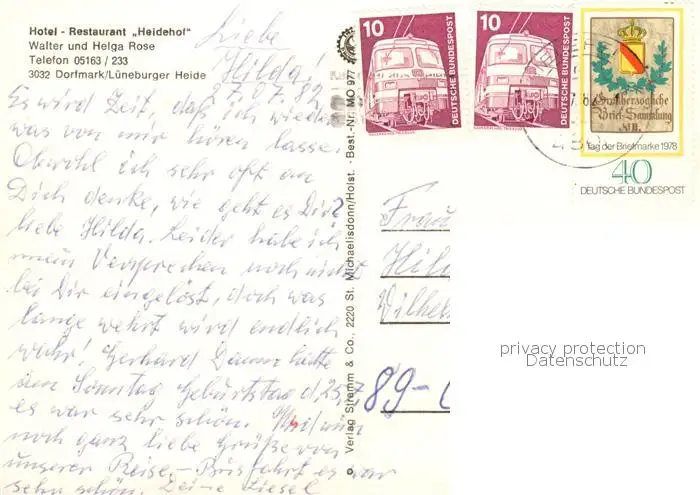 Hotel - Restaurant „Heidehof"
Walter und Helga Rose
Telefon 05163 / 233
3032 Dorfmark/Lüneburger Heide
Liebe
Hilda,
27.07.82
Es wird Zeit, daß ich wieder
was von mir hören lasse.
Obwohl ich sehr oft an
Dich denke, wie geht es Dir?
liebe Hilda. Leider habe ich
mein Versprechen noch nicht
bei Dir eingelöst, doch was
lange währt wird endlich
wahr! Gerhard Damm hatte
am Sonntag Geburtstag d. 25.7
es war sehr schön.
noch ganz liebe Grüße von
unserer Reise. - Busfahrt es war
sehr schön. Deine Liesel
© Verlag Stramm & Co., 2220 St. Michaelisdonn/Holst. - Best.-Nr. MO 977
10
DEUTSCHE BUNDESPOST
10
DEUTSCHE BUNDESPOST
Großherzogliche
Brief-Sammlung
Tag der Briefmarke 1978
40
DEUTSCHE BUNDESPOST
Frau
Hil
Wilhel
89-
privacy protection
Datenschutz